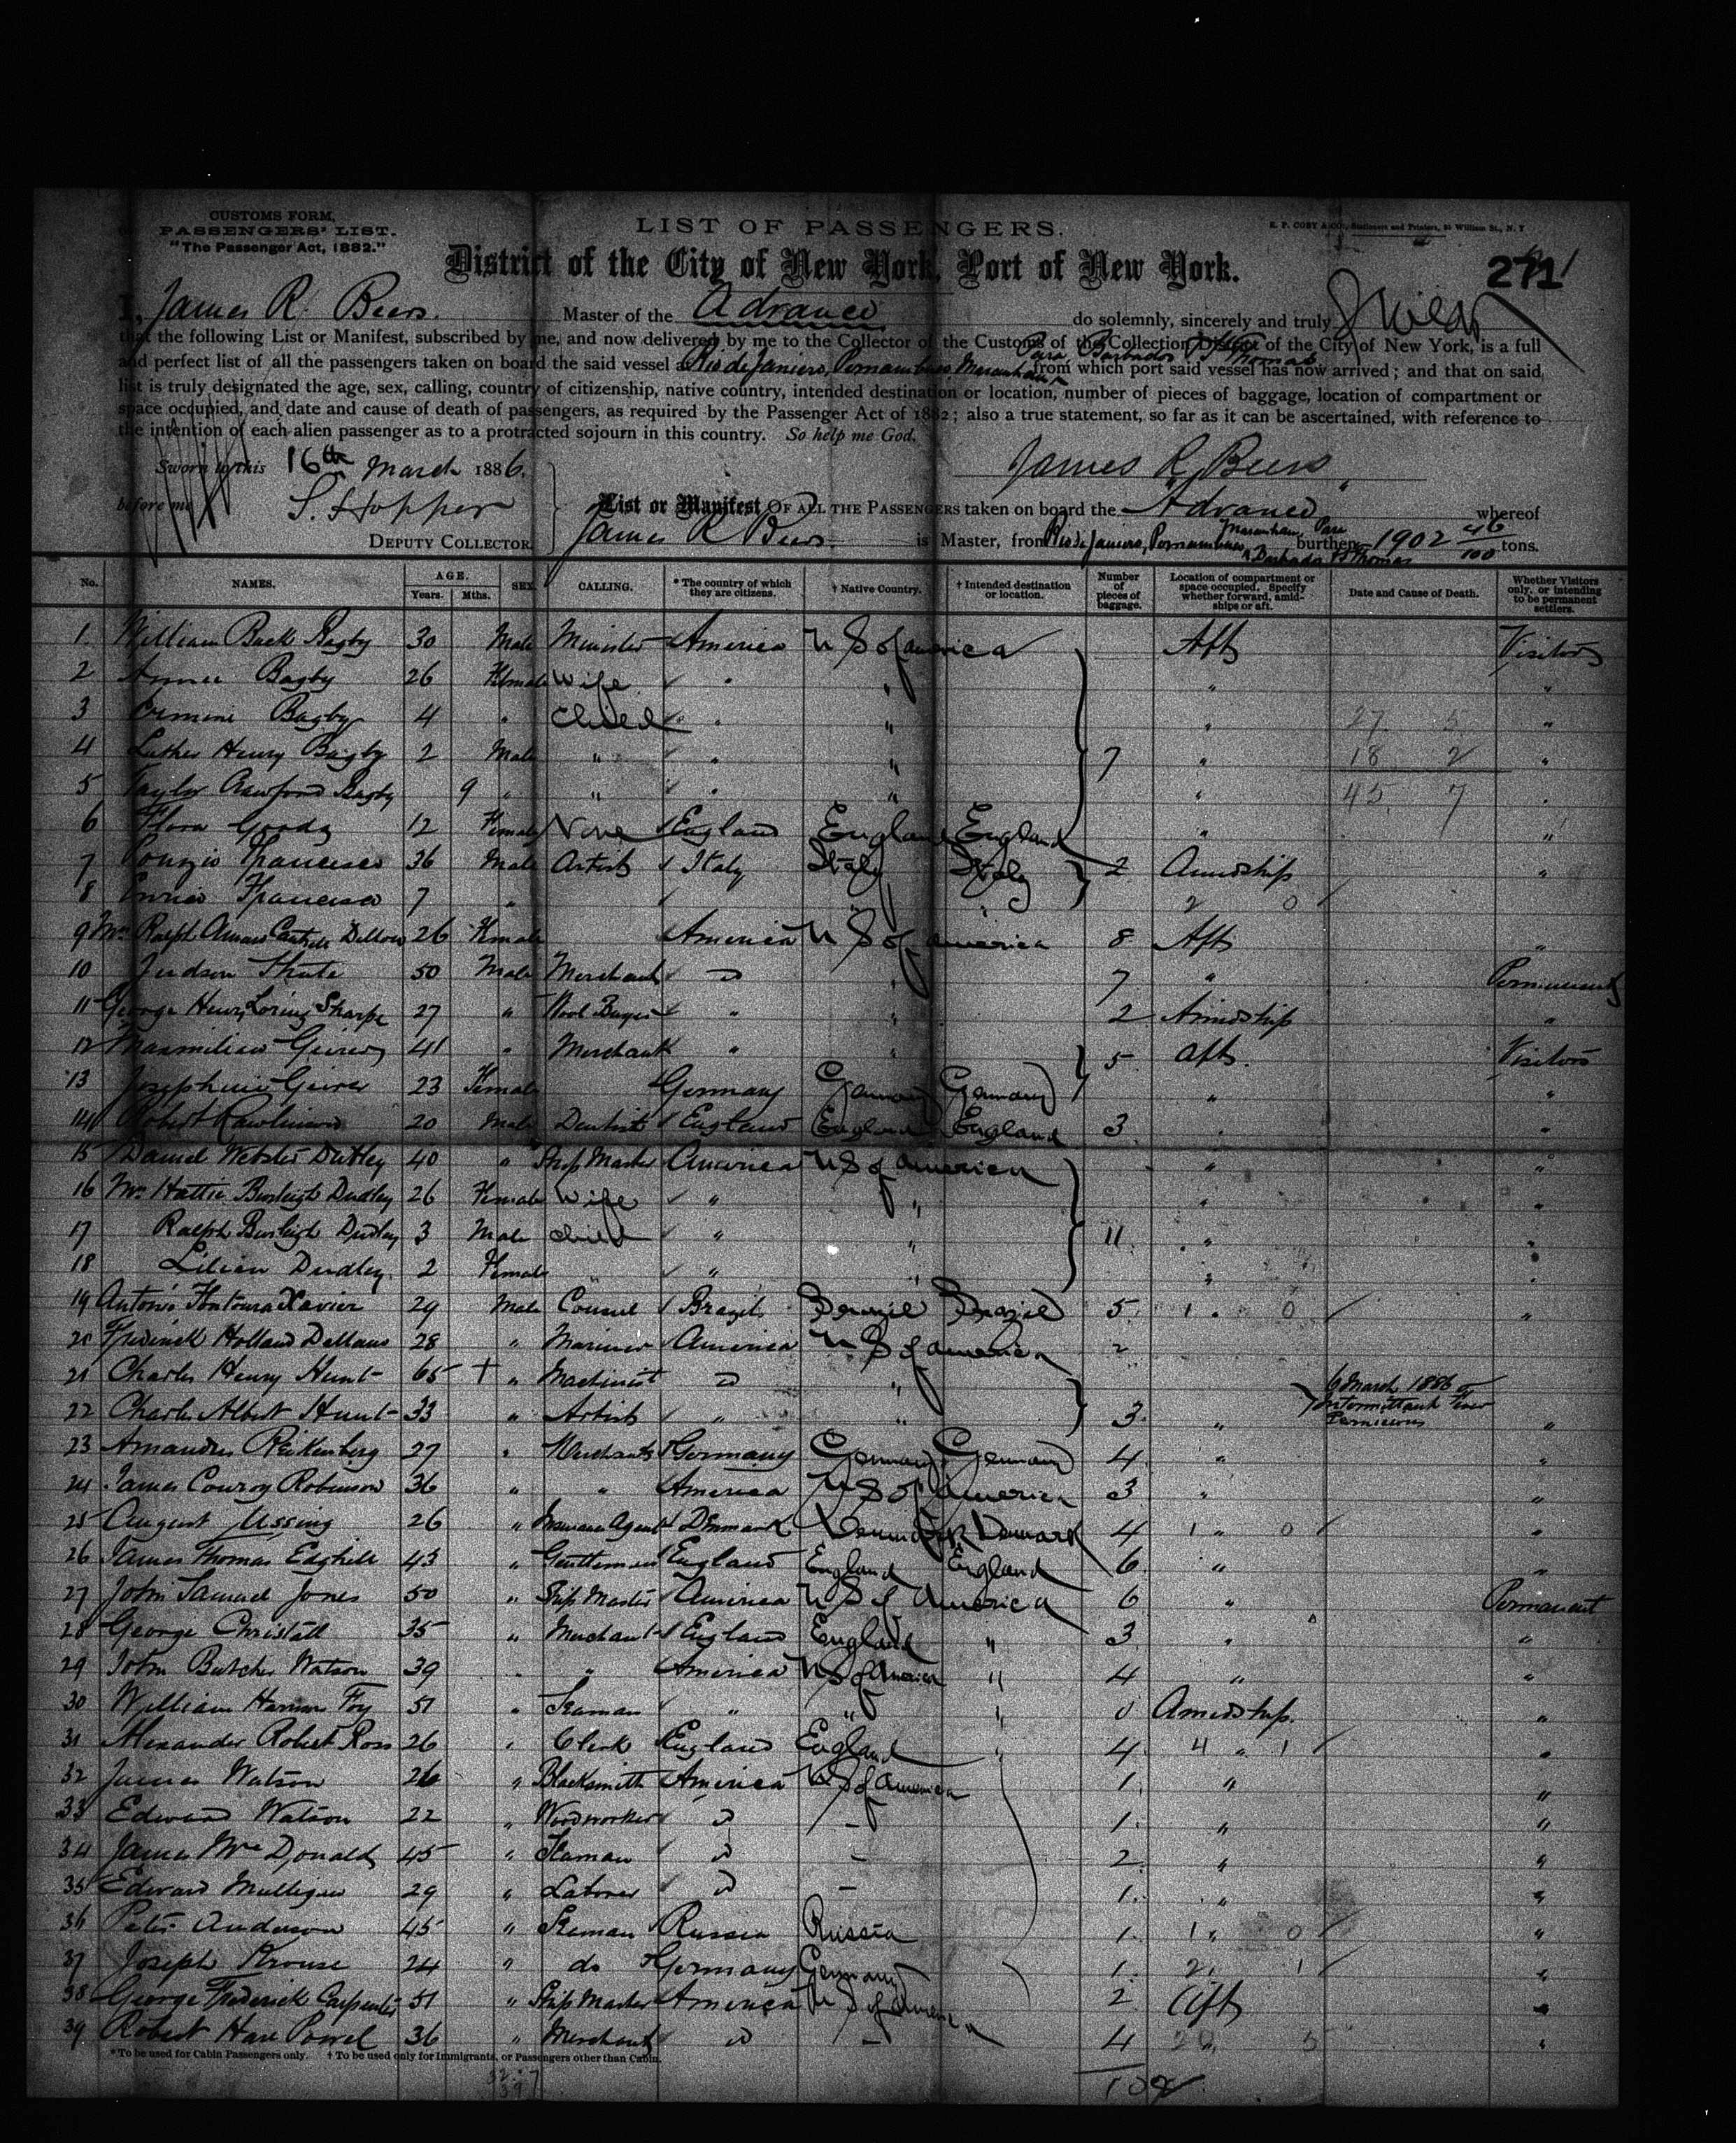 CUSTOMS FORM,
PASSENGERS' LIST.
"The Passenger Act, 1882."
LIST OF PASSENGERS.
E. P. COBY & CO., Stationers and Printers, William St., N. Y
District of the City of New York, Port of New York.
271
I, James R. Beers. Master of the Advance do solemnly, sincerely and truly
that the following List or Manifest, subscribed by me, and now delivered by me to the Collector of the Customs of the Collection District of the City of New York, is a full
Para Barbados & St Thomas
and perfect list of all the passengers taken on board the said vessel Rio de Janiero, Pernambuco, Maranham from which port said vessel has now arrived; and that on said
list is truly designated the age, sex, calling, country of citizenship, native country, intended destination or location, number of pieces of baggage, location of compartment or
space occupied, and date and cause of death of passengers, as required by the Passenger Act of 1882; also a true statement, so far as it can be ascertained, with reference to
the intention of each alien passenger as to a protracted sojourn in this country. So help me God.
Sworn to this 16th March 1886. James R. Beers
before me S. Hopper
List or Manifest OF ALL THE PASSENGERS taken on board the "Advance" whereof
DEPUTY COLLECTOR. James R Beers is Master, from Rio de Janiero, Pernambuco, Maranham, Para Barbados & St Thomas burthen 1902 46/100 tons.
No. NAMES. AGE. Years. Mths. SEX. CALLING. * The country of which they are citizens. † Native Country. † Intended destination or location. Number of pieces of baggage. Location of compartment or space occupied. Specify whether forward, amidships or aft. Date and Cause of Death. Whether Visitors only, or intending to be permanent settlers.
1. William Buck Bagby 30 Male Minister America U S of America Aft Visitors
2 Bagby 26 Female Wife " " " "
3 Ermine Bagby 4 " Child " " " 27 5 "
4 Luther Henry Bagby 2 Male " " " 7 " 18 2 "
5 Taylor Crawford Bagby 9 " " " " " 45 7 "
6 Flora Goody 12 Female None England England England " "
7 Francesco 36 Male Artist Italy Italy Italy 2 Amidship "
8 Enrico Francesco 7 " 2 0
9 Mrs Ralph 26 Female America U S of America 8 Aft "
10 Judson Shute 50 Male Merchant do " 7 " Permanent
11 George Henry Loring Sharpe 27 " Wool Buyer " " 2 Amidship "
12 Maxmilian 41 " Merchant " " 5 Aft Visitors
13 Josephine 23 Female Germany Germany Germany " "
14 Robert Rawlinson 20 Male Dentist England England England 3 " "
15 Daniel Webster Dudley 40 " Ship Master America U S of America " "
16 Mrs Hattie Burleigh Dudley 26 Female Wife " " " "
17 Ralph Burleigh Dudley 3 Male Child " " 11 " "
18 Lilian Dudley 2 Female " " " "
19 Antonio Fontoura Xavier 29 Male Consul Brazil Brazil Brazil 5 1 " 0 "
20 Frederick Holland 28 " Mariner America U S of America 2
21 Charles Henry Hunt 65 + " Machinist do " 6 March 1886
22 Charles Albert Hunt 33 " Artist " " 3 " Intermittent Fever Pernicious "
23 27 " Merchant Germany Germany Germany 4 " "
24 James Conroy Robinson 36 " " America U S of America 3 " "
25 August Ussing 26 " Agent Denmark Denmark Denmark 4 1 " 0 "
26 James Thomas Edghill 43 " Gentleman England England England 6 " "
27 John Samuel Jones 50 " Ship Master America U S of America 6 " Permanent
28 George Christall 35 " Merchant England England " 3 " "
29 John Butcher Watson 39 " " America U S of America " 4 " "
30 William Foy 51 " Seaman " " " 0 Amidship. "
31 Alexander Robert Ross 26 " Clerk England England " 4 4 " 1 "
32 James Watson 26 " Blacksmith America U S of America 1 " "
33 Edward Watson 22 " Woodworker do - 1 " "
34 James McDonald 45 " Seaman do - 2 " "
35 Edward Mulligan 29 " Laborer do - 1 " "
36 Peter Anderson 45 " Seaman Russia Russia 1 1 " 0 "
37 Joseph Krouse 24 " do Germany Germany 1 2 1 "
38 George Frederick Carpenter 51 " Ship Master America U S of America 2 Aft "
39 Robert Hare Powel 36 " Merchant do - 4 5 "
* To be used for Cabin Passengers only. † To be used only for Immigrants, or Passengers other than Cabin.